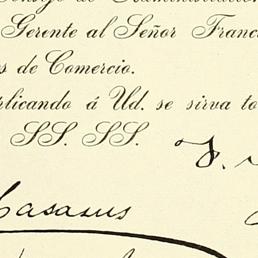 Gerente al Señor Franc
s de Comercio.
plicando á Ud. se sirva to
SS. SS.
Casasus